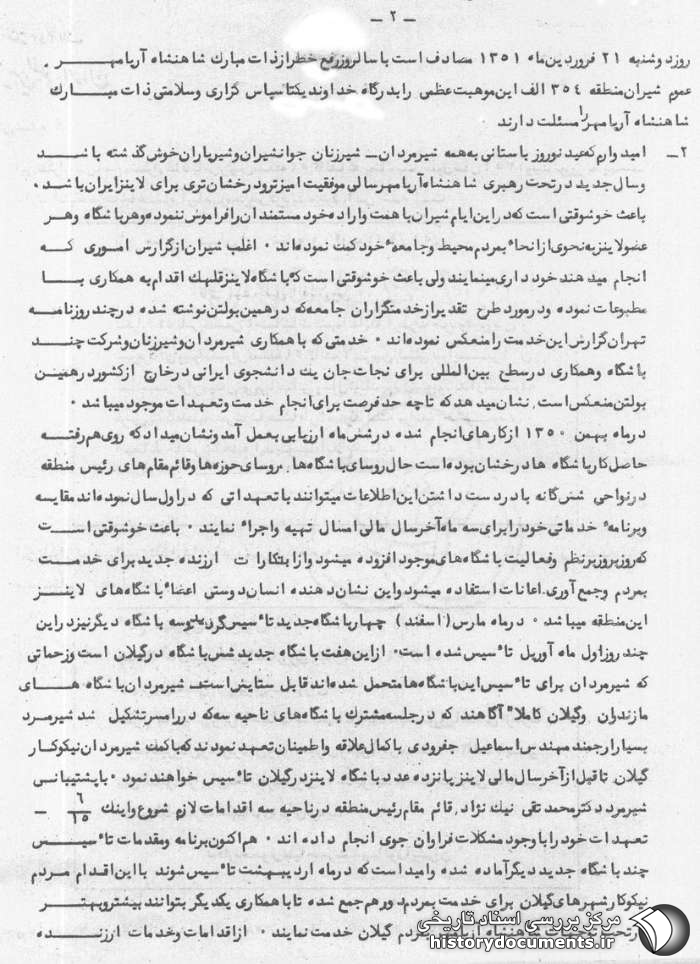 ـ ۲ ـ
روز دوشنبه ۲۱ فروردین‌ماه ۱۳۵۱ مصادف است با سالروز رفع خطر از ذات مبارک شاهنشاه آریامهر .
عموم شیران منطقه ۳۵۴ الف این موهبت عظمی را بدرگاه خداوند یکتا سپاس گزاری و سلامتی ذات مبارک
شاهنشاه آریامهر را مسئلت دارند
۲ـ امیدوارم که عید نوروز باستانی به همه شیرمردان ـ شیرزنان جوانشیران و شیریاران خوش گذشته باشد
و سال جدید در تحت رهبری شاهنشاه آریامهر سالی موفقیت آمیزتر و درخشان تری برای لاینز ایران باشد .
باعث خوشوقتی است که در این ایام شیران با همت و اراده خود مستمندان را فراموش ننموده و هر باشگاه و هر
عضو لاینز به نحوی از انحاء بمردم محیط و جامعهٔ خود کمک نموده‌اند . اغلب شیران از گزارش اموری که
انجام میدهند خودداری مینمایند ولی باعث خوشوقتی است که باشگاه لاینز قلهک اقدام به همکاری با
مطبوعات نموده و در مورد طرح تقدیر از خدمتگزاران جامعه که در همین بولتن نوشته شده در چند روزنامه
تهران گزارش این خدمت را منعکس نموده‌اند . خدمتی که با همکاری شیرمردان و شیرزنان و شرکت چند
باشگاه و همکاری در سطح بین‌المللی برای نجات جان یک دانشجوی ایرانی در خارج از کشور در همین
بولتن منعکس است نشان میدهد که تا چه حد فرصت برای انجام خدمت و تعهدات موجود میباشد .
در ماه بهمن ۱۳۵۰ از کارهای انجام شده در شش ماه ارزیابی بعمل آمد و نشان میداد که روی هم رفته
حاصل کار باشگاه ها درخشان بوده است حال روسای باشگاه‌ها , روسای حوزه‌ها و قائم مقام های رئیس منطقه
در نواحی شش گانه با در دست داشتن این اطلاعات میتوانند با تعهداتی که در اول سال نموده‌اند مقایسه
و برنامهٔ خدماتی خود را برای سه ماه آخر سال مالی امسال تهیه و اجراء نمایند . باعث خوشوقتی است
که روز بروز بر نظم و فعالیت باشگاه‌های موجود افزوده میشود و از ابتکارات ارزنده جدید برای خدمت
بمردم و جمع آوری اعانات استفاده میشود و این نشان دهنده انسان دوستی اعضاء باشگاه‌های لاینز
این منطقه میباشد . در ماه مارس ( اسفند ) چهار باشگاه جدید تأسیس گردید و سه باشگاه دیگر نیز در این
چند روز اول ماه آوریل تأسیس شده است . از این هفت باشگاه جدید شش باشگاه در گیلان است و زحماتی
که شیرمردان برای تأسیس این باشگاه‌ها متحمل شده‌اند قابل ستایش است . شیرمردان باشگاه های
مازندران و گیلان کاملاً آگاهند که در جلسه مشترک باشگاه‌های ناحیه سه که در رامسر تشکیل شد شیرمرد
بسیار ارجمند مهندس اسماعیل جفرودی با کمال علاقه و اطمینان تعهد نمودند که با کمک شیرمردان نیکوکار
گیلان تا قبل از آخر سال مالی لاینز پانزده عدد باشگاه لاینز در گیلان تأسیس خواهند نمود . با پشتیبانی
شیرمرد دکتر محمد تقی نیک نژاد , قائم مقام رئیس منطقه در ناحیه سه اقدامات لازم شروع و اینک ۶/۱۵ ـ
تعهدات خود را با وجود مشکلات فراوان جوی انجام داده‌اند . هم اکنون برنامه و مقدمات تأسیس
چند باشگاه جدید دیگر آماده شده و امید است که در ماه اردیبهشت تأسیس شوند با این اقدام مردم
نیکوکار شهرهای گیلان برای خدمت بمردم دور هم جمع شده تا با همکاری یکدیگر بتوانند بیشتر و بهتر
در تحت توجهات شاهنشاه آریامهر بمردم گیلان خدمت نمایند . از اقدامات و خدمات ارزنده
مرکز بررسی اسناد تاریخی
historydocuments.ir